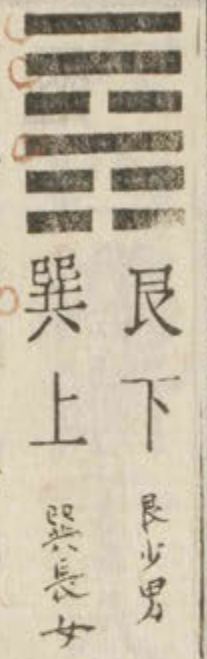 艮下 艮少男
巽上 巽長女